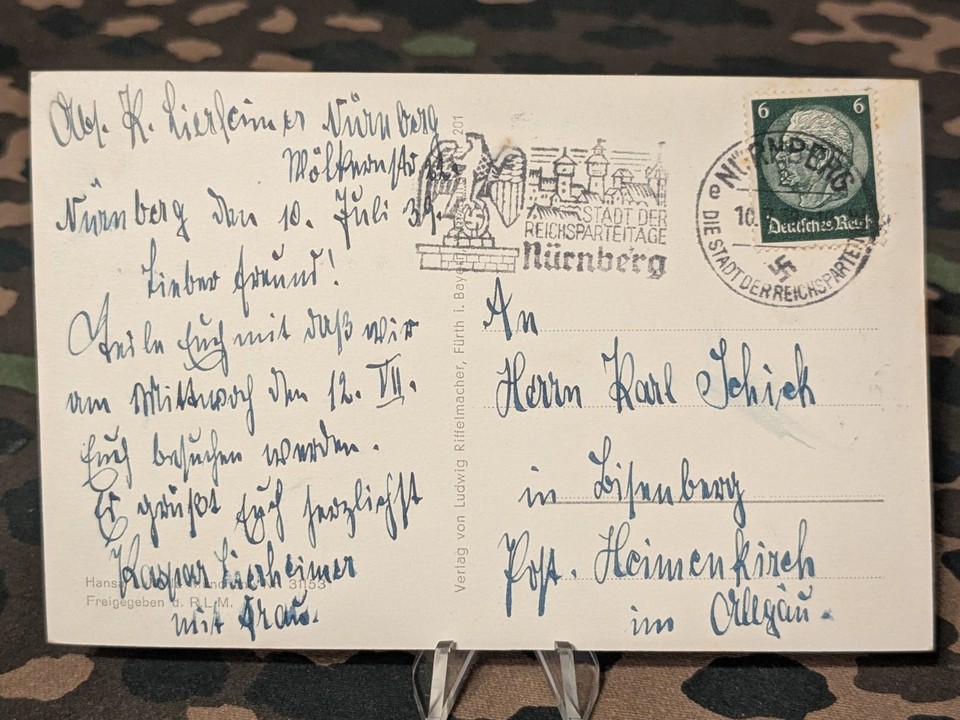 Abs. K. Lierheimer Nürnberg
Wölkernstr.
Nürnberg den 10. Juli 39.
Lieber Freund!
Teile Euch mit daß wir
am Mittwoch den 12. VII.
Euch besuchen werden.
Es grüßt Euch herzlichst
Kaspar Lierheimer
mit Frau.
Hansa
31153
Freigegeben d. R.L.M.
Verlag von Ludwig Riffelmacher, Fürth i. Bayern
201
STADT DER
REICHSPARTEITAGE
Nürnberg
NÜRNBERG
10.
DIE STADT DER REICHSPARTEITAGE
6 6
Deutsches Reich
An
Herrn Karl Schick
in Bisenberg
Post. Heimenkirch
im Allgäu.